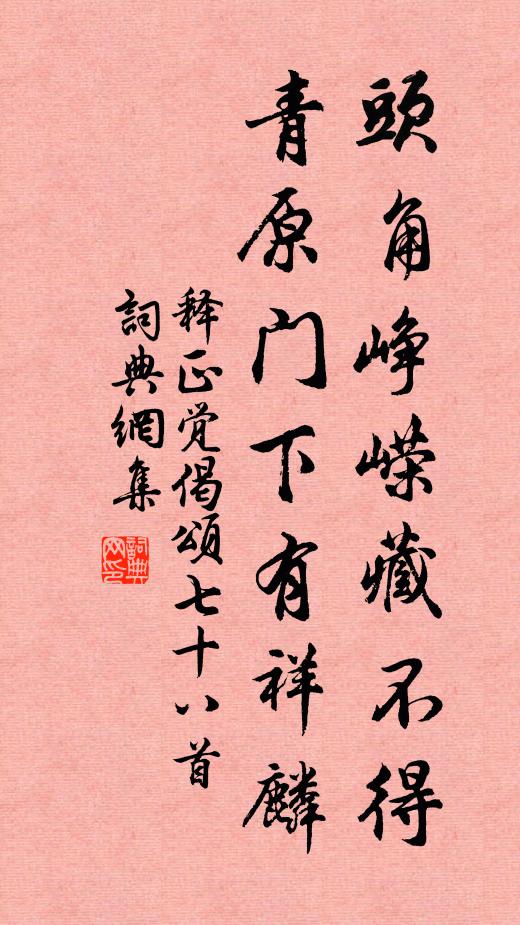 頭角峥嶸藏不得
青原门下有祥麟
释正觉偈頌七十八首
詞典網集
詞典
网印